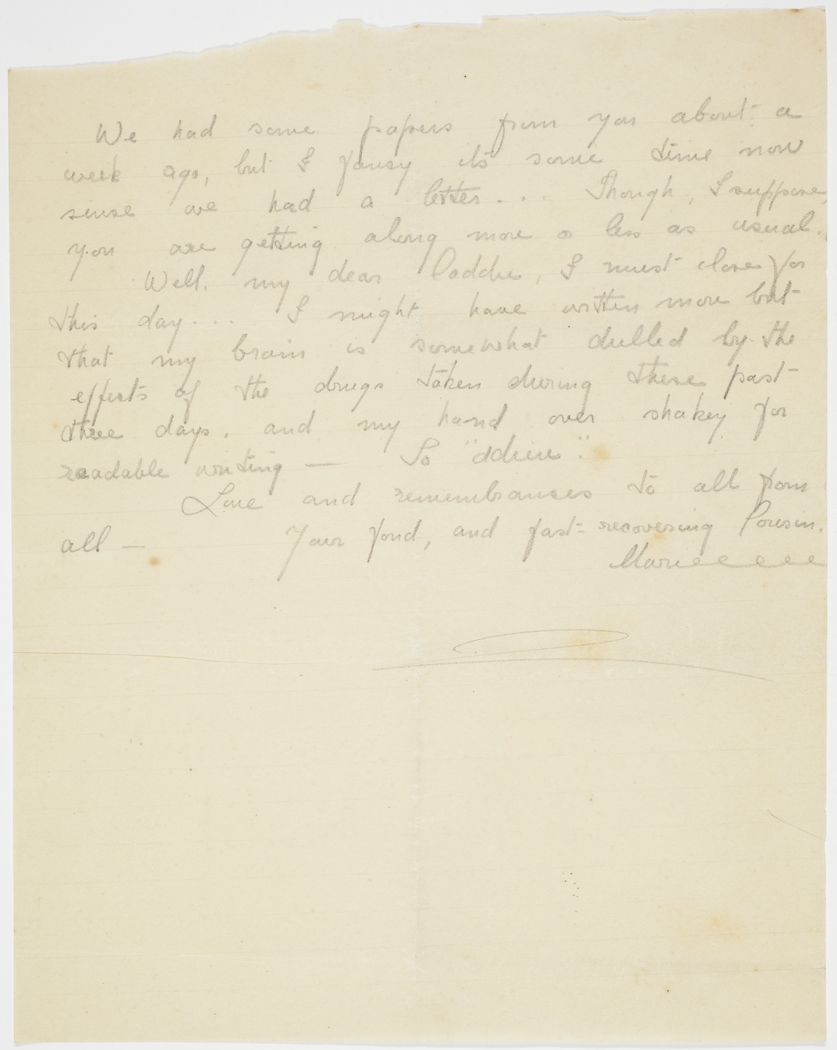 We had some papers from you about a
week ago, but I fansy its some time now
sinse we had a letter... Though, I suppose,
you are getting along more or less as usual.
Well, my dear Paddie, I must close for
this day.... I might have written more but
that my brain is somewhat dulled by the
effects of the drugs taken during these past
three days, and my hand over shakey for
readable writing — So "adieu".
Love and remembranses to all from
all — Your fond, and fast-recovering Cousin.
Marieeeee